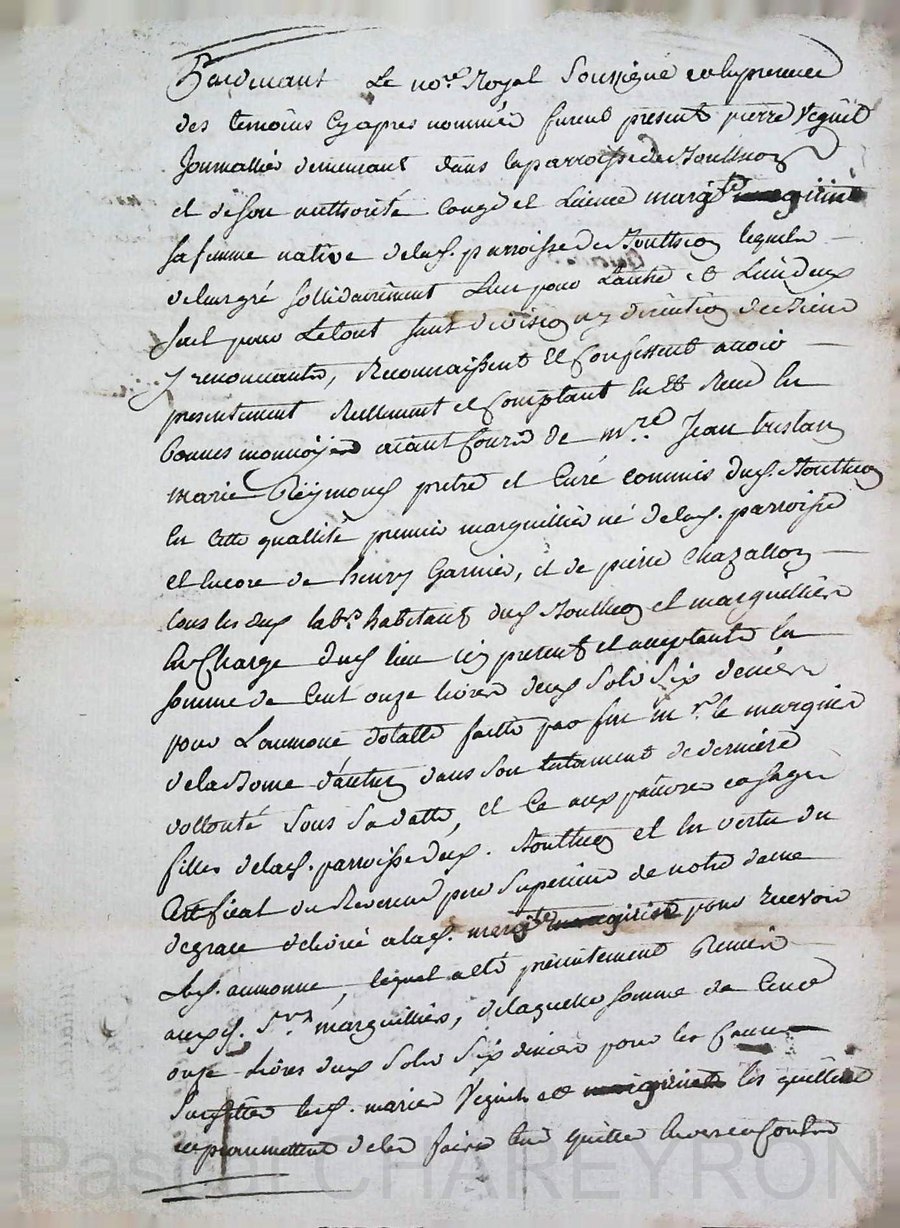 Pardevant Le no.re Royal Soussigné et en presence
des temoins cy apres nommés furent présent pierre Veguit
Journallier demeurant dans la parroisse de
et de son authorité congé et Licence marg.te
sa femme native de lad. parroisse de lequels
de leur gré sollidairement L'un pour L'autre et L'un deux
seul pour Le tout sans division ny discution de bien
y renoncants, Reconnaissent et Confessent avoir
presentement Reellement et Comptant eu et Receu en
bonnes monnoyes aiant Cours de M.re Jean tristan
marie Reymond pretre et Curé commis dud.
en cette quallité premier marguillier né de lad. parroisse
et encore de henry Garnier, et de pierre Chazallon
tous les deux lab.rs habitants dud. et marguilliers
en Charge dud. lieu icy presents et acceptants la
somme de Cent onze livres deux Sols Six deniers
pour L'aumone dotalle faitte par feu M.r le marquis
de la dans son testament de derniere
vollonté Sous Sa datte, et Ce aux pauvres et sages
filles de lad. parroisse dud. et en vertu du
Certificat du Reverend pere Superieur de notre dame
de grace délivré a lad. marg.te pour recevoir
lad. aumonne, lequel a eté presentement Remis
auxd. S.rs marguilliers, de laquelle somme de Cent
onze Livres deux Sols Six deniers pour les Causes
Susdittes lesd. mariés Veguit et les quittent
et promettent de les faire tenir quittes envers et contre
Pascal CHAREYRON